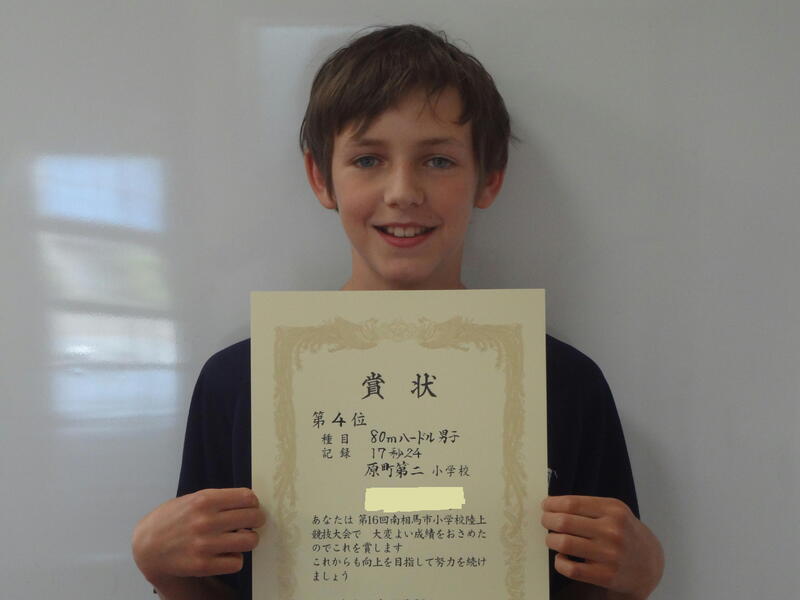 賞状
第4位
種目 80mハードル男子
記録 17秒24
原町第二 小学校
あなたは 第16回南相馬市小学校陸上
競技大会で 大変よい成績をおさめた
のでこれを賞します
これからも向上を目指して努力を続け
ましょう